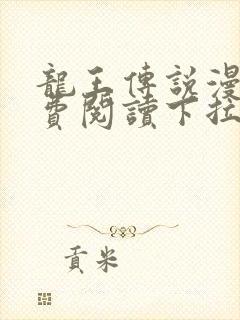 龍王傳說漫
費閱讀下拉
貢米